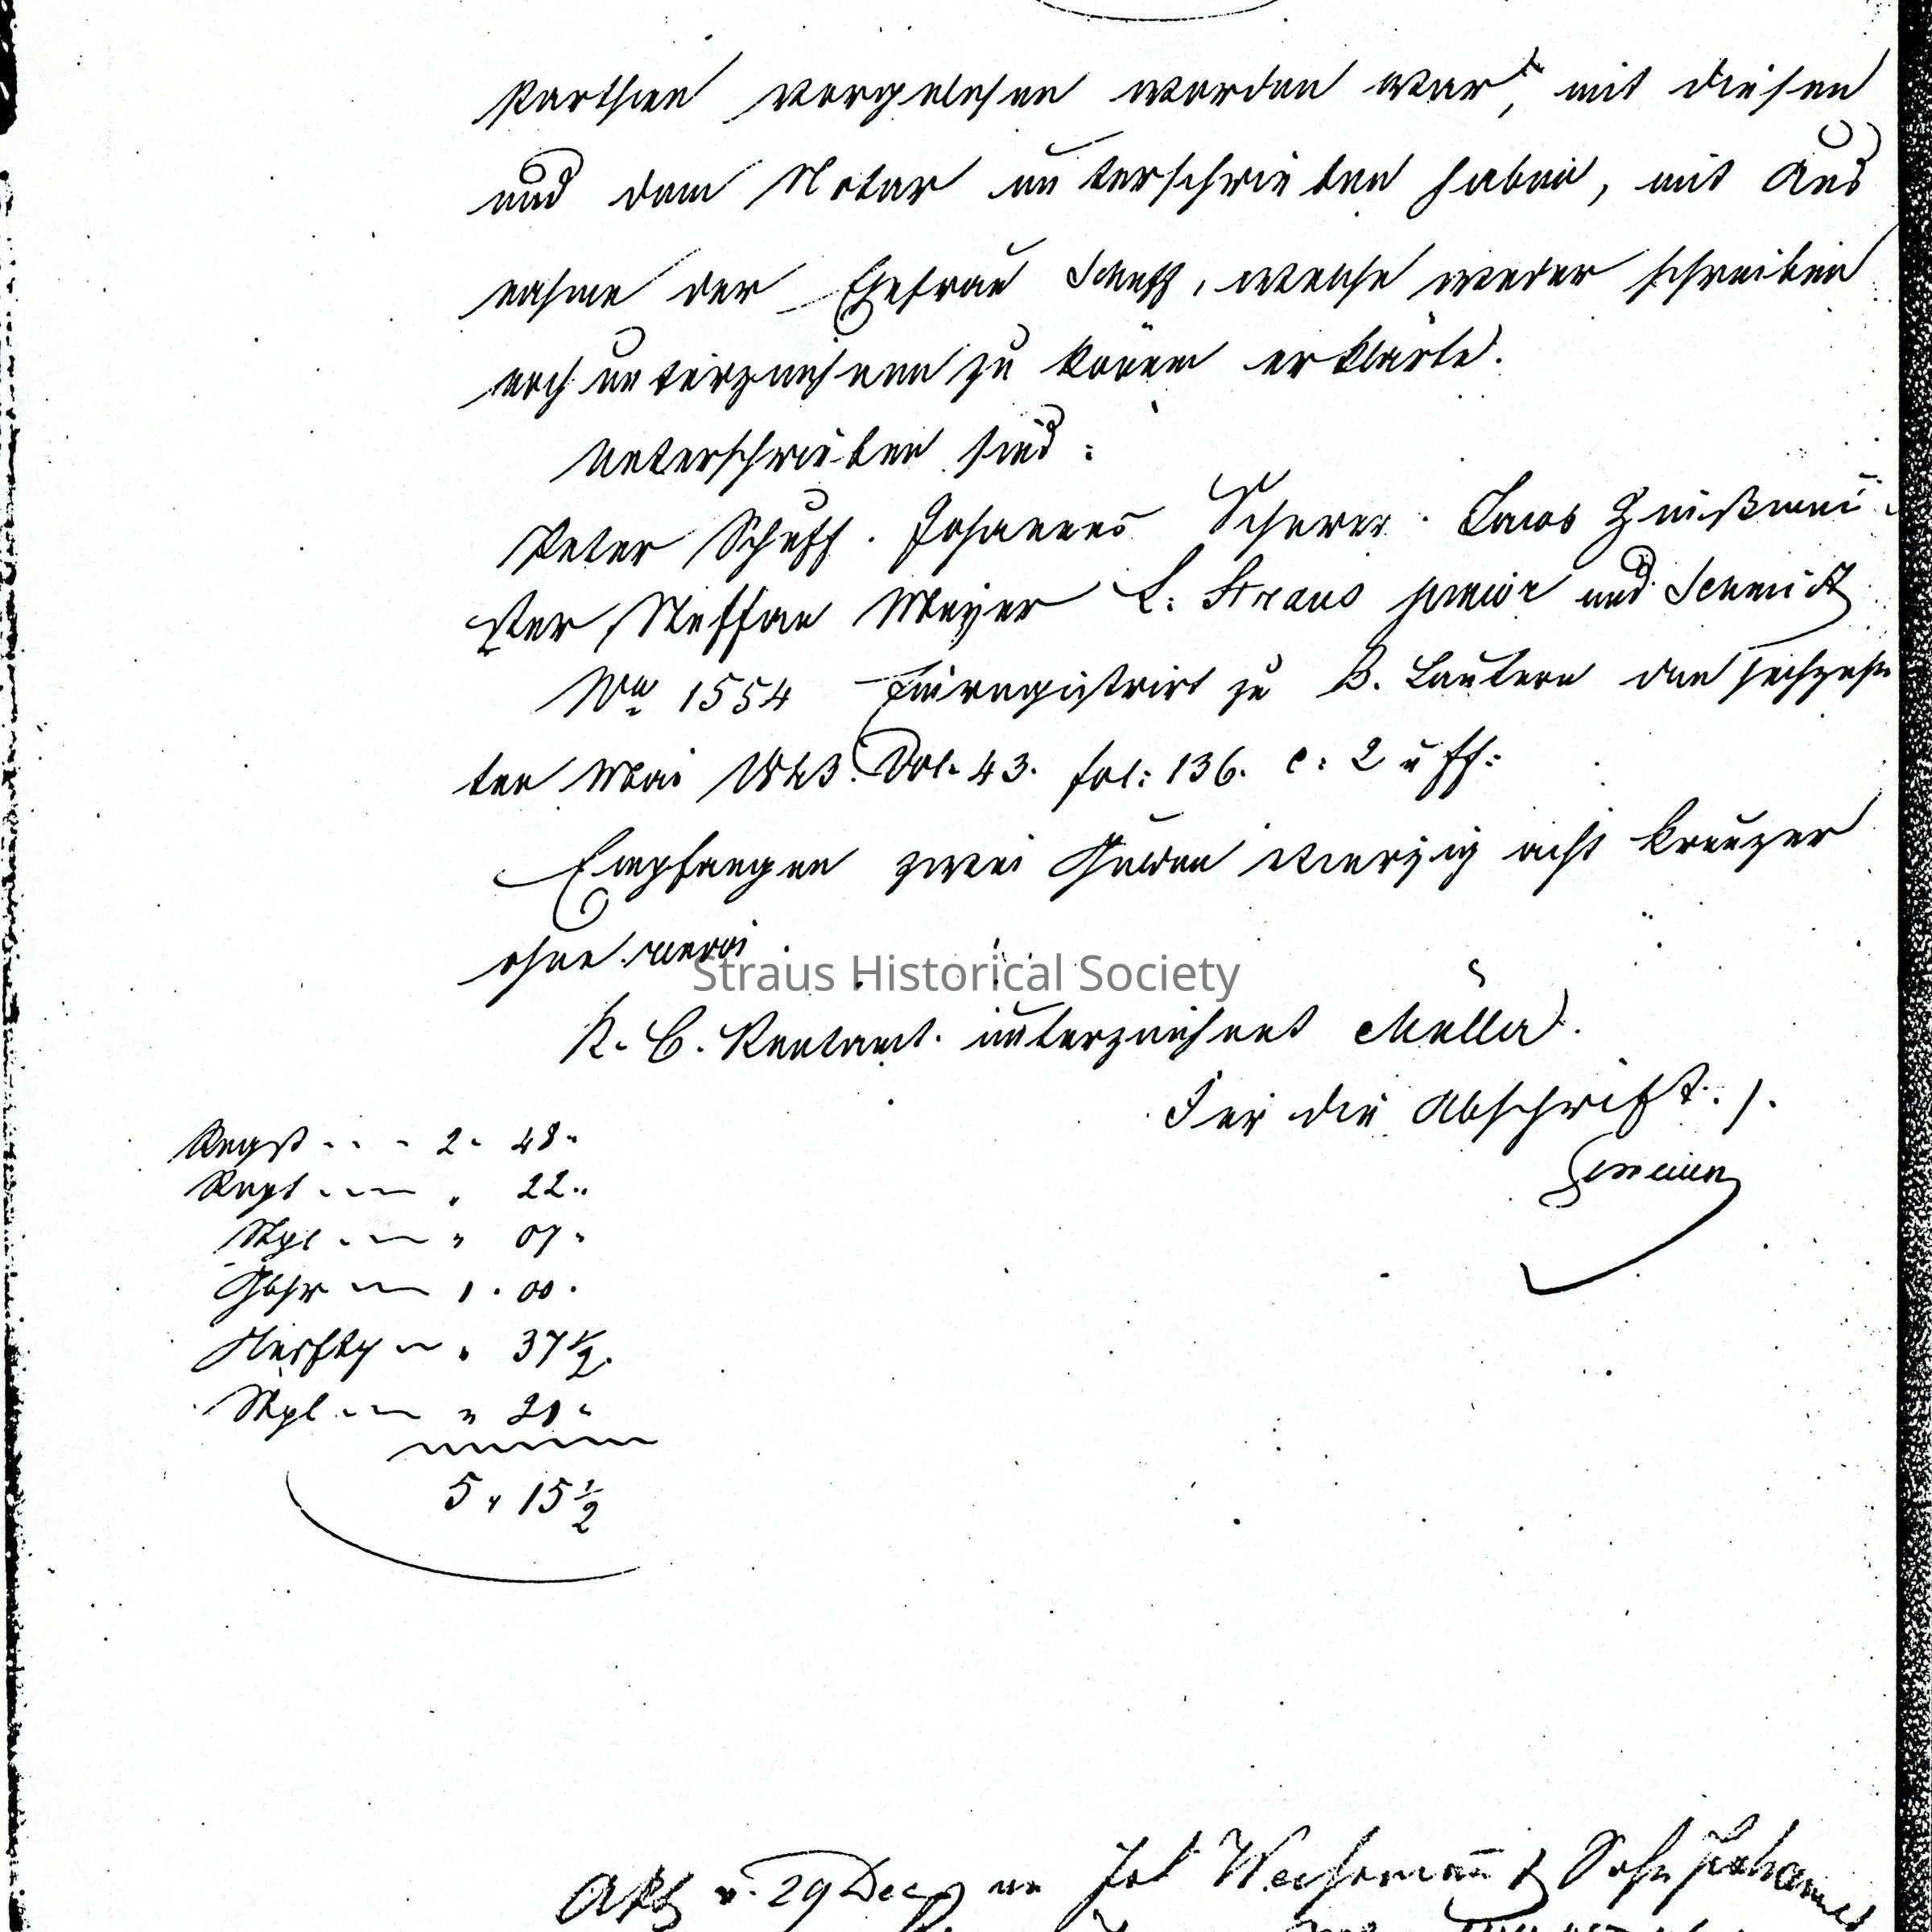 Parthien vorgelesen worden war, mit diesen
und dem Notar unterschrieben haben, mit Aus
nahme der Ehefrau Schuff, welche weder schreiben
noch unterzeichnen zu können erklärte.
Unterschrieben sind:
Peter Schuff. Johannes Scherer. Jacob Zinßmei
ster, Steffan Meyer L. Straus junior und Schmidt
Nro 1554 Einregistrirt zu K. Lautern den sechzehn
ten Mai 1843. Vol. 43. fol: 136. c: 2 u ff:
Empfangen zwei Gulden vierzig acht Kreuzer
ohne renvoi.
K. B. Rentamt. unterzeichnet Müller.
Für die Abschrift.
Regst 2. 48.
Rept 22.
Stpl 07.
Gbhr 1. 00.
37 1/2.
Stpl
5. 15 1/2
Akt v. 29 Dec an Jak Sohn Johannes
Straus Historical Society